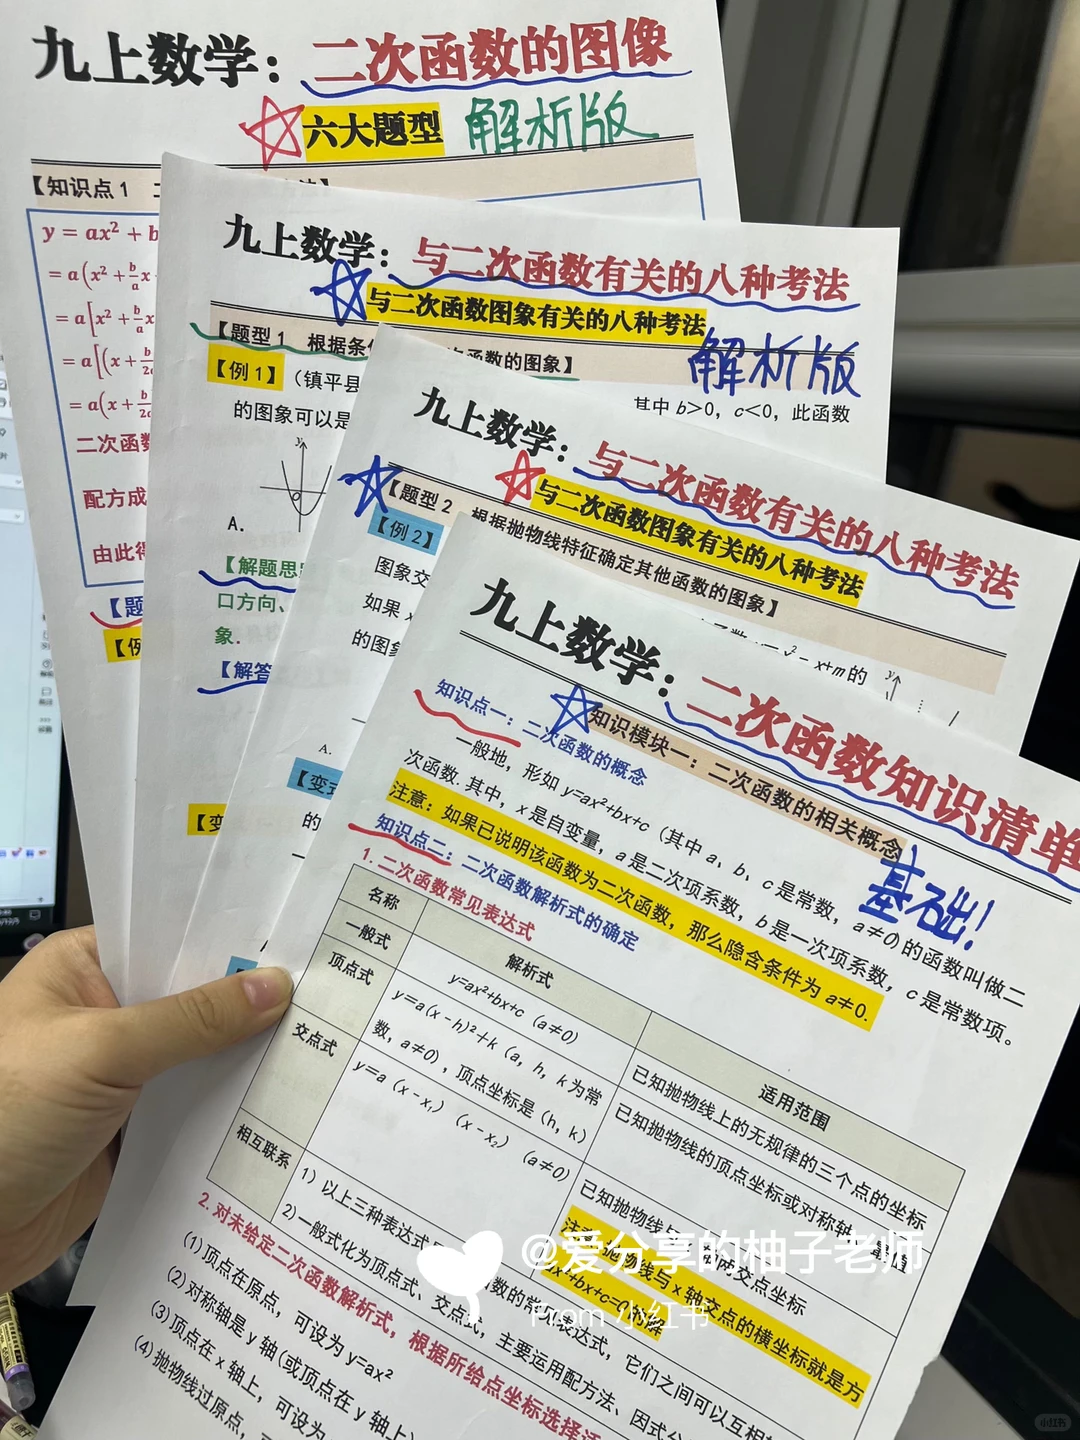 九上数学：二次函数的图像
六大题型 解析版
【知识点1
y = ax² + b
= a(x² + b/a x
= a[x² + b/a x
= a[(x + b/2a
= a(x + b/2a
二次函数
配方成
由此得
【题
【例
九上数学：与二次函数有关的八种考法
与二次函数图象有关的八种考法
解析版
【题型1 根据条件 次函数的图象】
【例1】（镇平县 其中 b＞0，c＜0，此函数
的图象可以是
y
O
A.
【解题思路
口方向、
象．
【解答
【变
九上数学：与二次函数有关的八种考法
与二次函数图象有关的八种考法
【题型2 根据抛物线特征确定其他函数的图象】
【例2】
x+m的
图象交
如果
的图象
y
A.
【变式
的
九上数学：二次函数知识清单
知识模块一：二次函数的相关概念
基础！
知识点一：二次函数的概念
一般地，形如 y=ax²+bx+c（其中 a，b，c 是常数，a≠0）的函数叫做二
次函数.其中，x 是自变量，a 是二次项系数，b 是一次项系数，c 是常数项。
注意：如果已说明该函数为二次函数，那么隐含条件为 a≠0.
知识点二：二次函数解析式的确定
1. 二次函数常见表达式
名称 解析式 适用范围
一般式 y=ax²+bx+c（a≠0） 已知抛物线上的无规律的三个点的坐标
顶点式 y=a(x-h)²+k（a，h，k 为常
数，a≠0），顶点坐标是（h，k） 已知抛物线的顶点坐标或对称轴
交点式 y=a（x-x₁）（x-x₂）（a≠0） 已知抛物线与 交点坐标
抛物线与 x 轴交点的横坐标就是方
相互联系 1）以上三种表达式 函数的常 表达式，它们之间可以互相
2）一般式化为顶点式、交点式，主要运用配方法、因式分
2. 对未给定二次函数解析式，根据所给点坐标选择适
(1)顶点在原点，可设为 y=ax²
(2)对称轴是 y 轴(或顶点在 y 轴上)
(3)顶点在 x 轴上，可设为
(4)抛物线过原点，
@爱分享的柚子老师
From 小红书
小红书